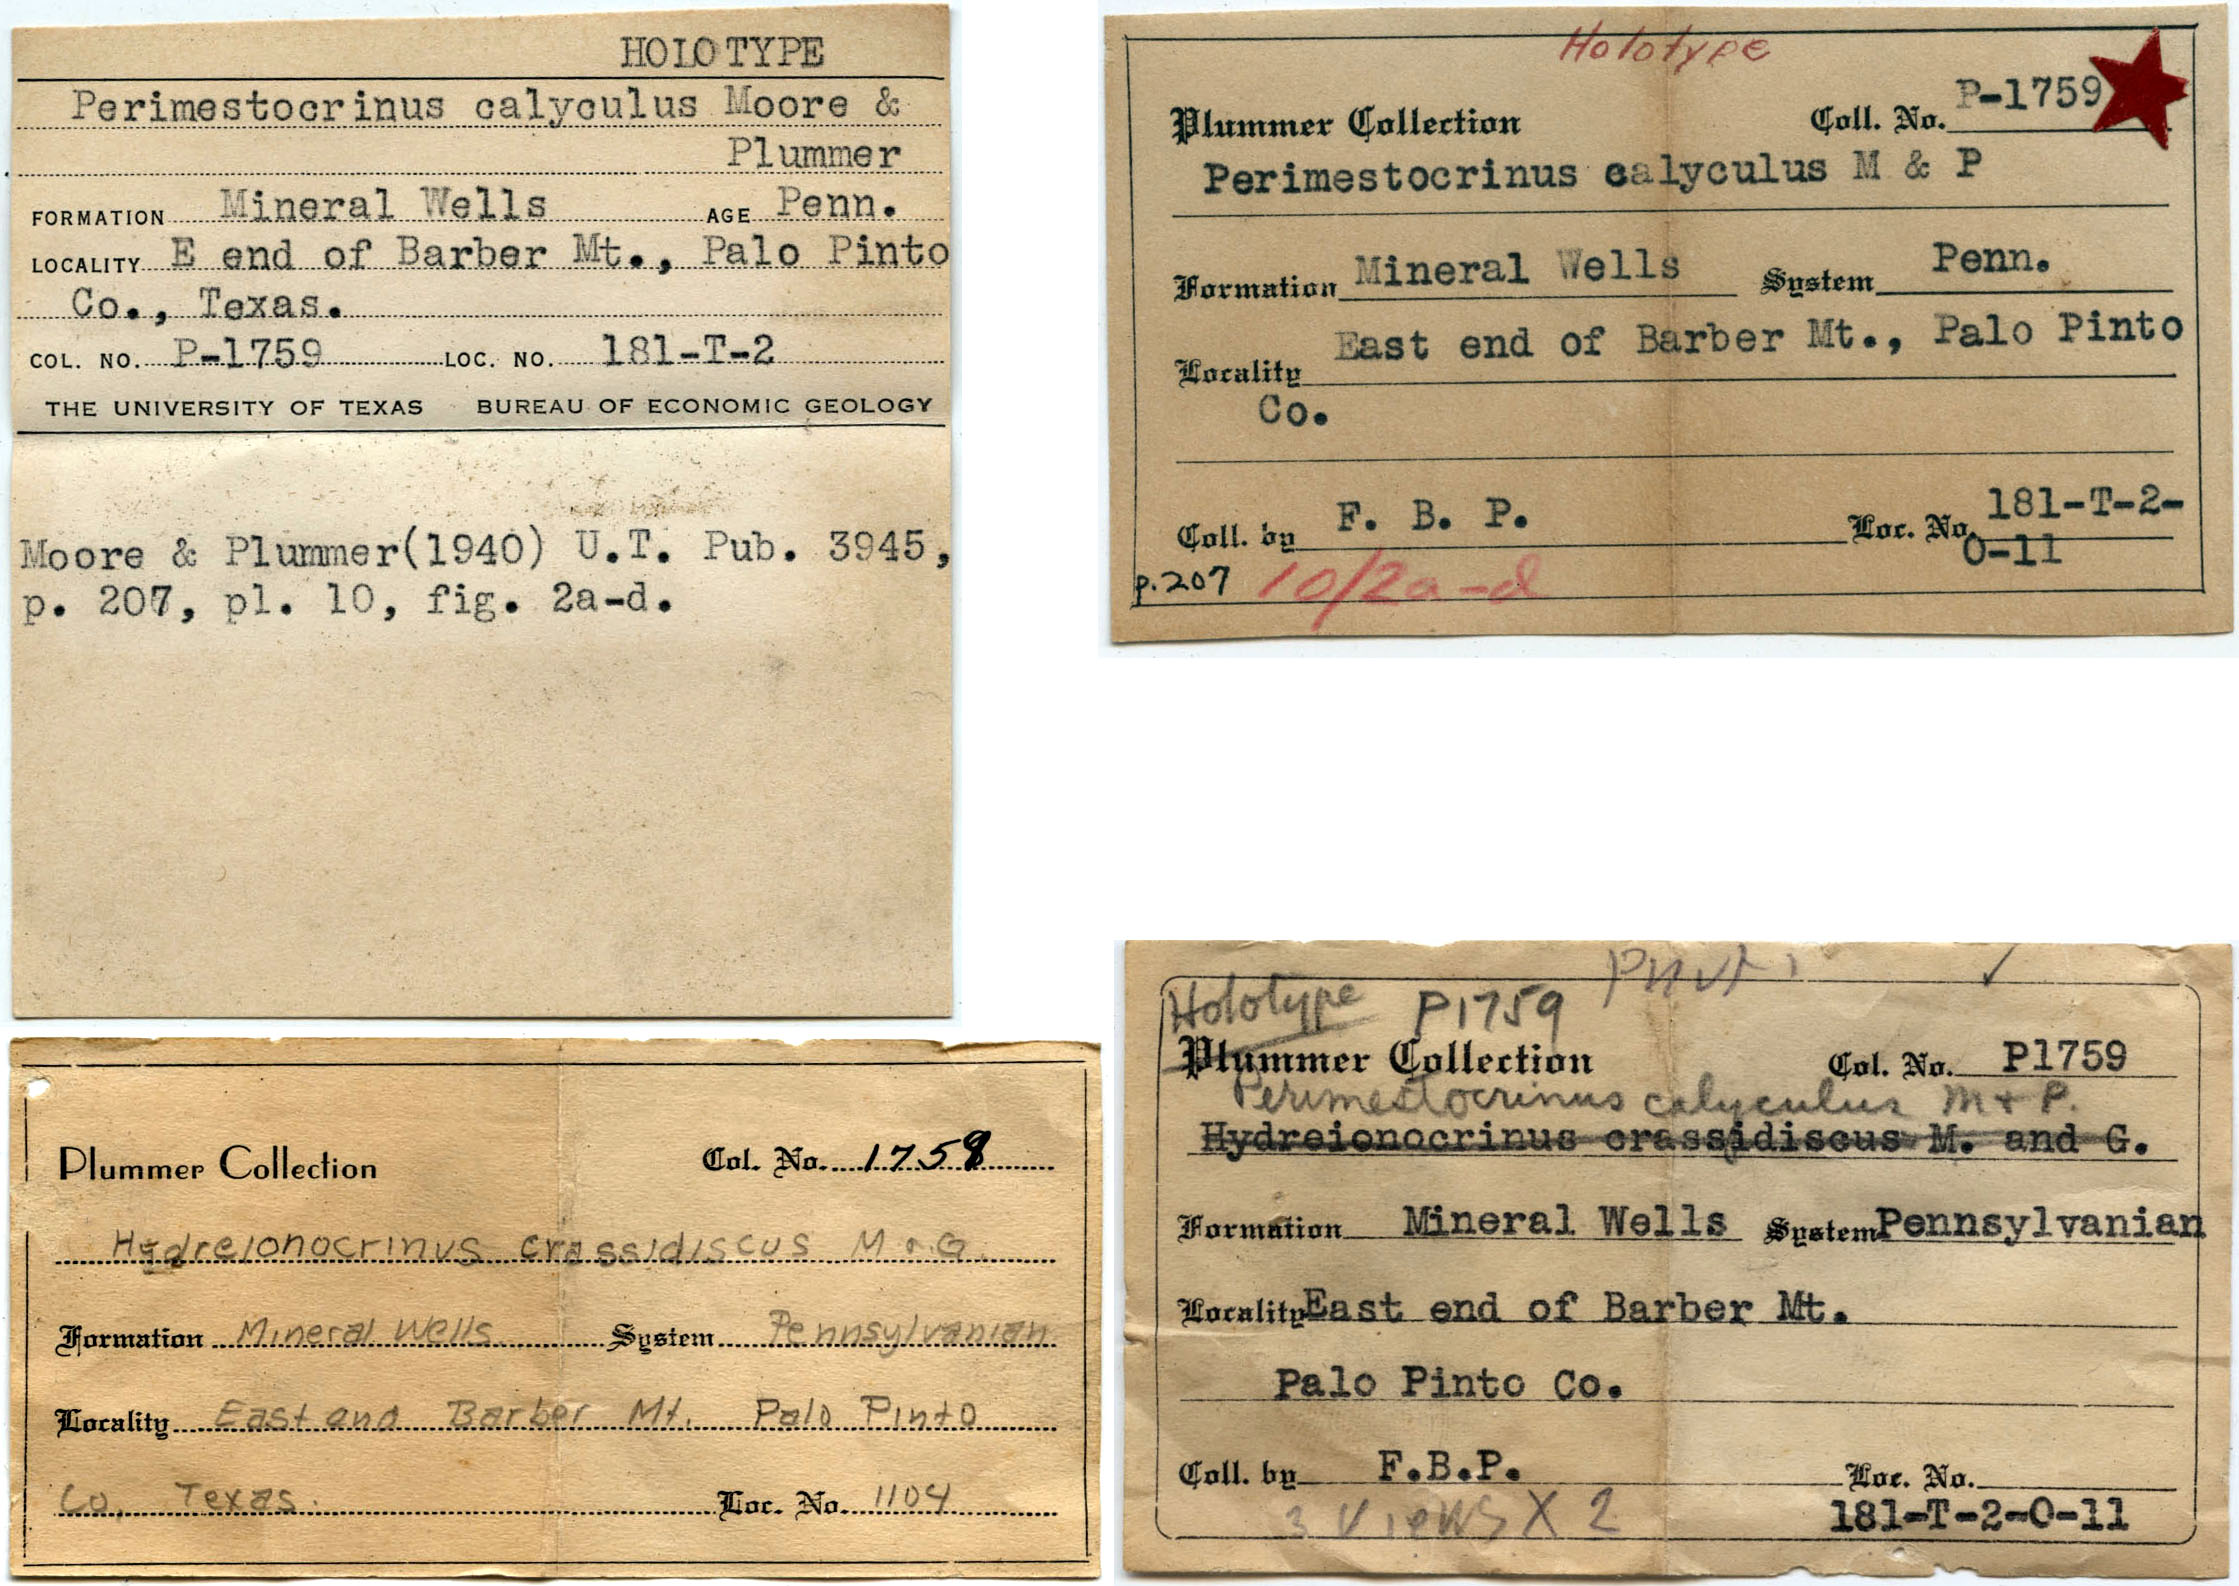 HOLOTYPE
Perimestocrinus calyculus Moore &
Plummer
FORMATION Mineral Wells AGE Penn.
LOCALITY E end of Barber Mt., Palo Pinto
Co., Texas.
COL. NO. P-1759 LOC. NO. 181-T-2
THE UNIVERSITY OF TEXAS BUREAU OF ECONOMIC GEOLOGY
Moore & Plummer(1940) U.T. Pub. 3945,
p. 207, pl. 10, fig. 2a-d.
Holotype
Plummer Collection Coll. No. P-1759
Perimestocrinus calyculus M & P
Formation Mineral Wells System Penn.
Locality East end of Barber Mt., Palo Pinto
Co.
Coll. by F. B. P. Loc. No. 181-T-2-
O-11
p.207 10/2a-d
Plummer Collection Col. No. 1759
Hydreionocrinus crassidiscus M & G.
Formation Mineral Wells System Pennsylvanian
Locality East end Barber Mt. Palo Pinto
Co. Texas. Loc. No. 1104
Holotype P1759
Plummer Collection Col. No. P1759
Perimestocrinus calyculus M + P.
Hydreionocrinus crassidiscus M. and G.
Formation Mineral Wells System Pennsylvanian
Locality East end of Barber Mt.
Palo Pinto Co.
Coll. by F.B.P. Loc. No.
181-T-2-O-11
3 Views X 2